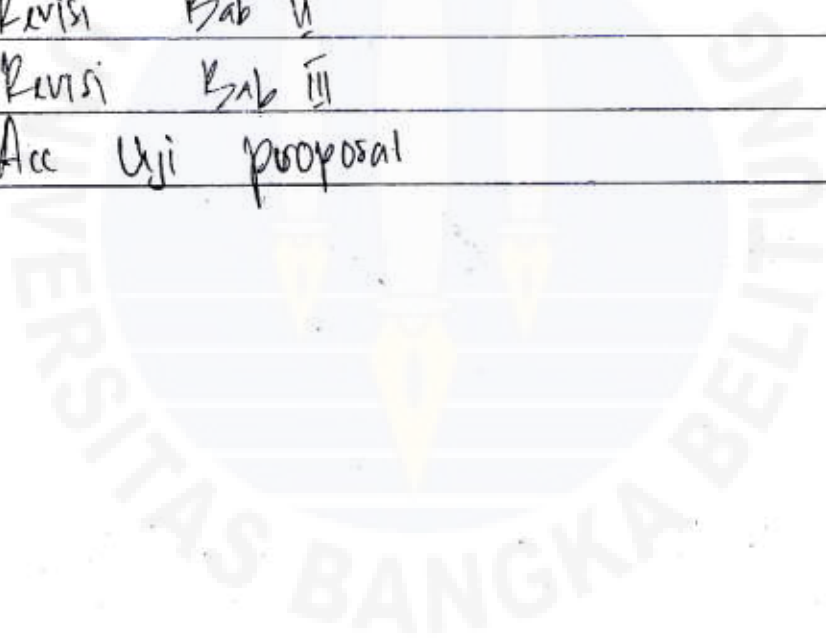 Revisi Bab II
Revisi Bab III
Acc Uji proposal
UNIVERSITAS BANGKA BELITUNG